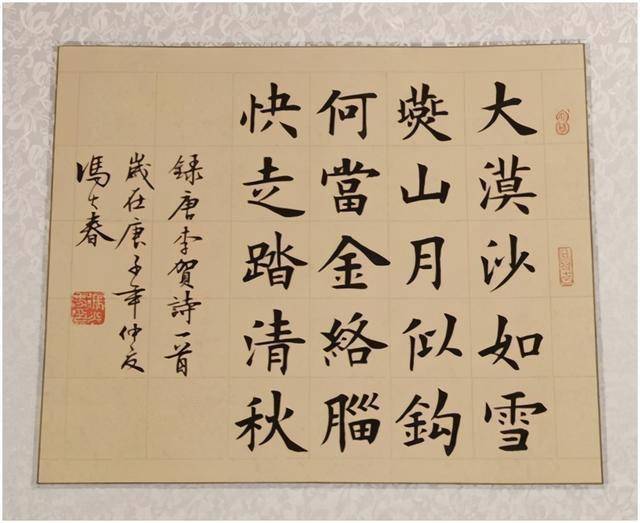 大漠沙如雪
燕山月似鈎
何當金絡腦
快走踏清秋
録唐李賀詩一首
歲在庚子年仲夏
馮春